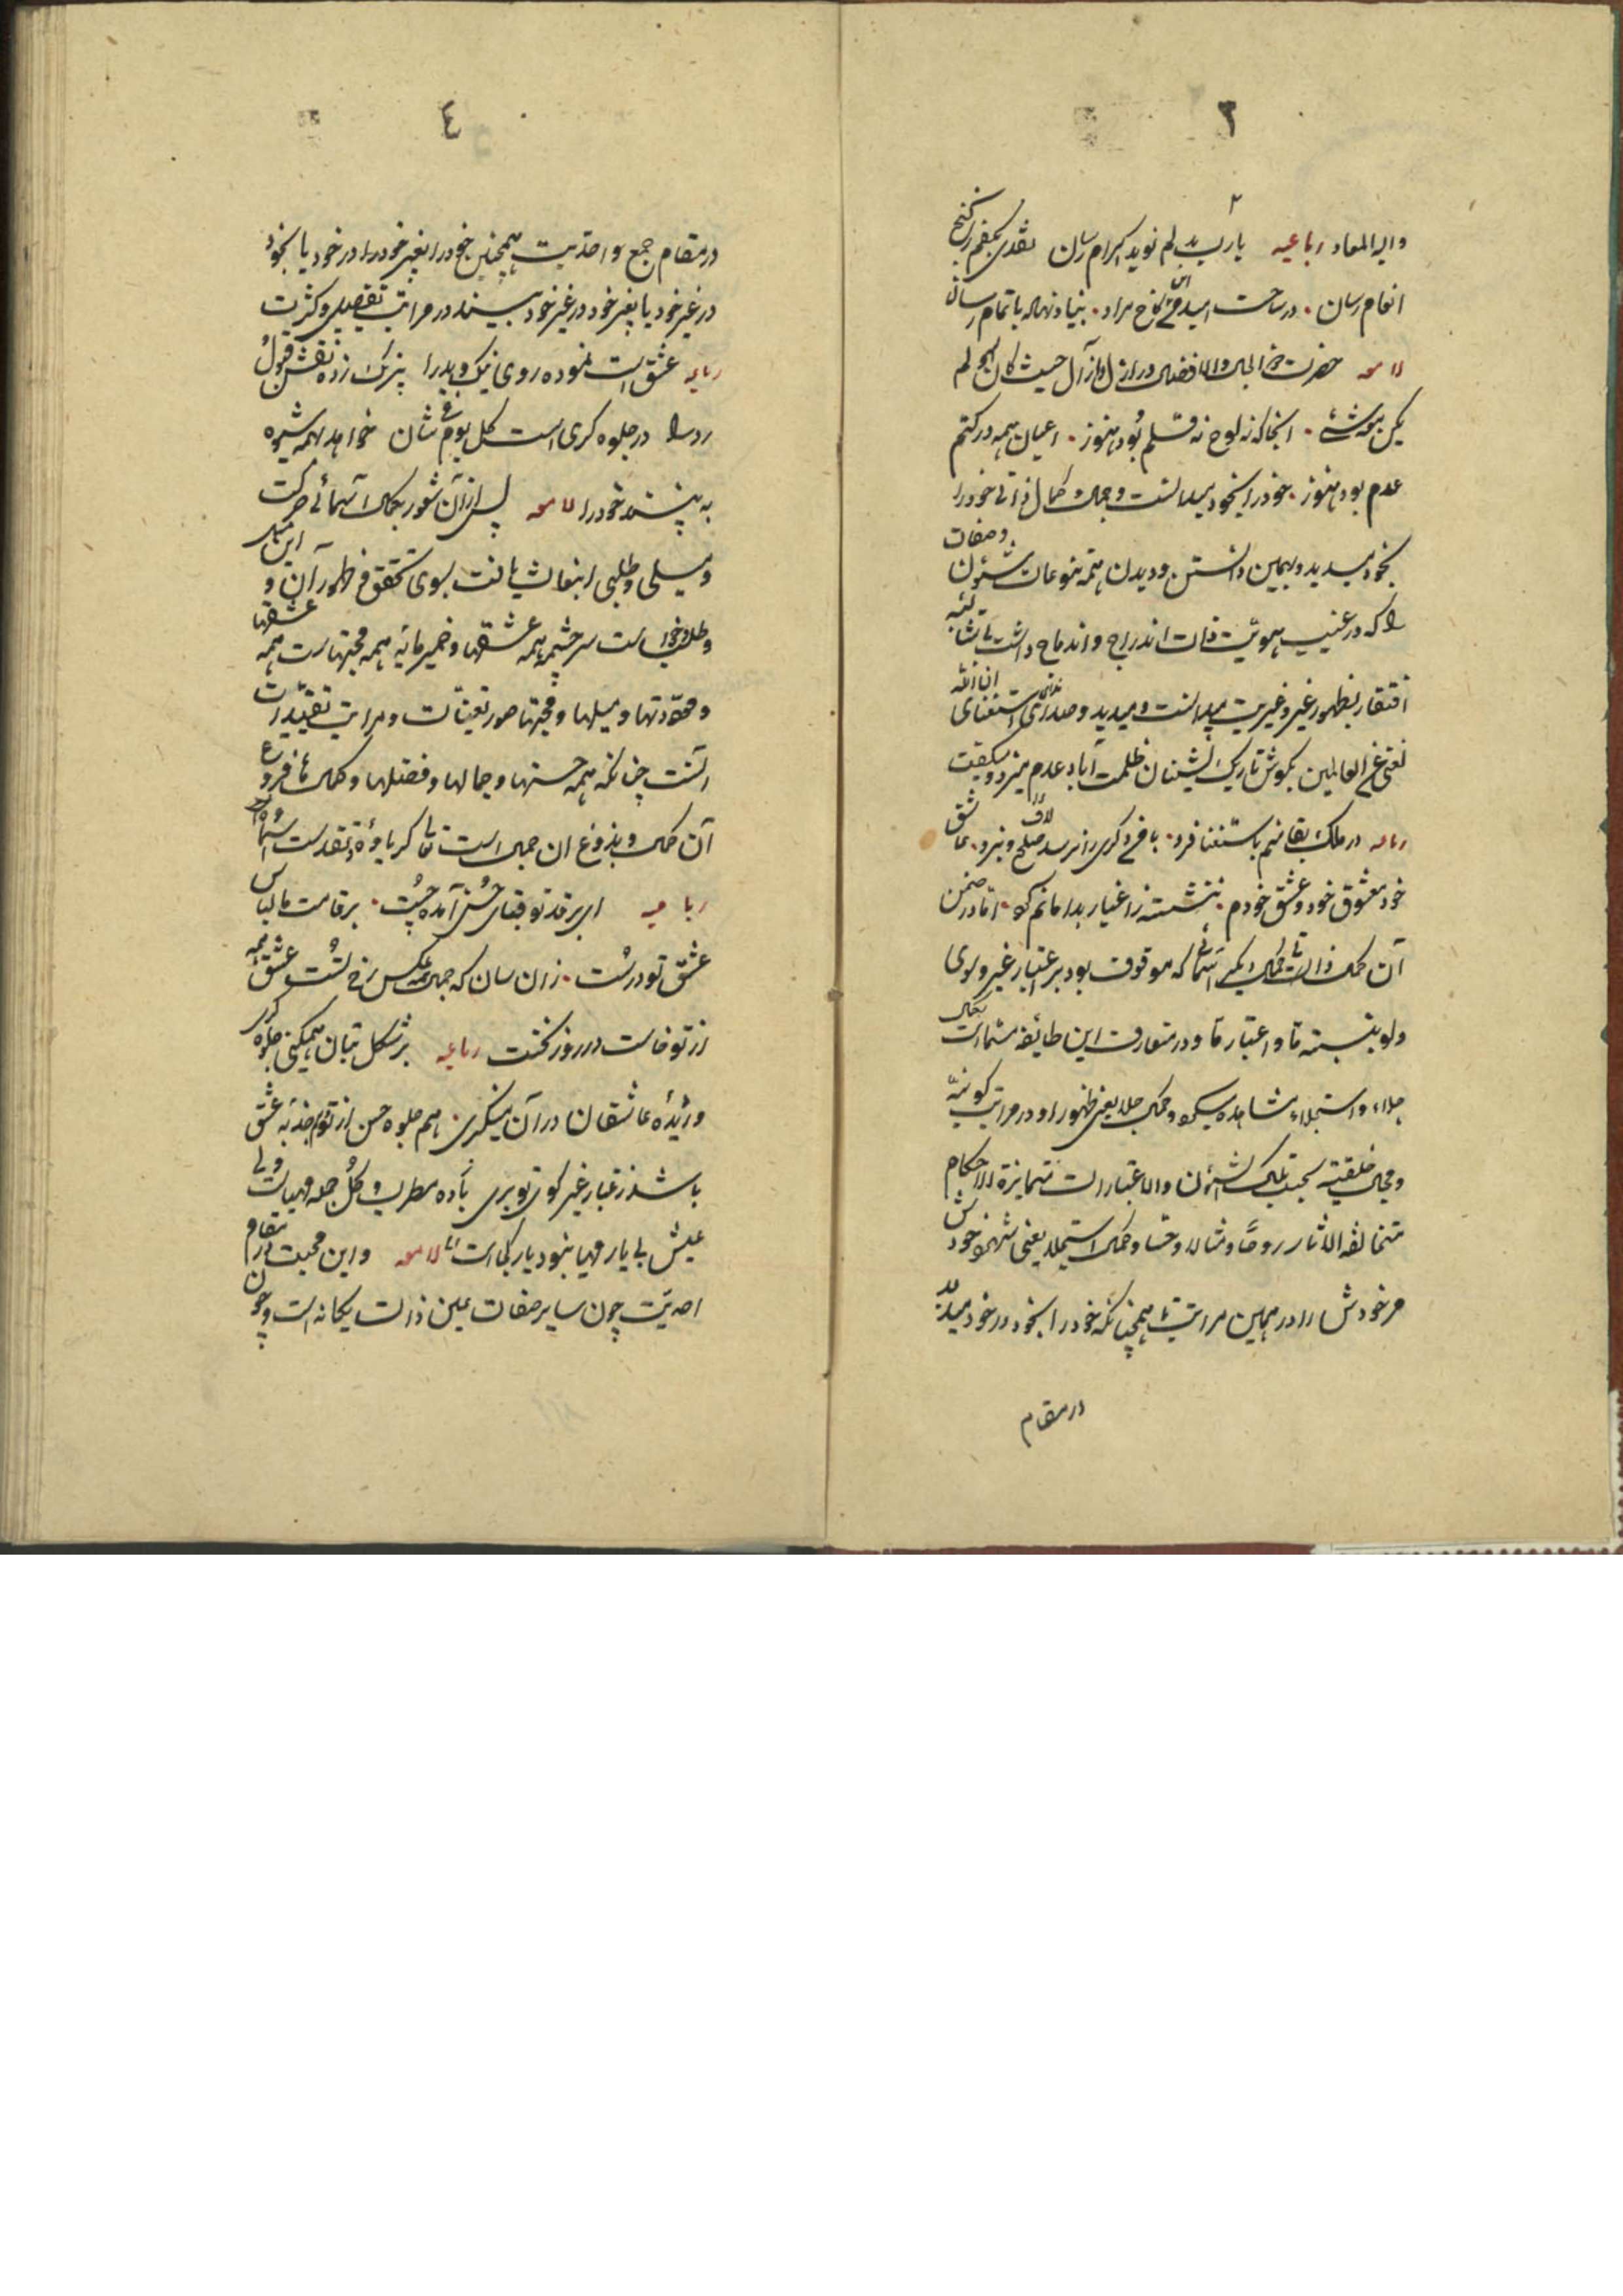 ٣
والیه المعاد رباعیه یا رب بدلم نوید اکرام رسان نقدی بکفم ز کنج
انعام رسان . در ساحت امید من کاخ مراد . بنیاد نهاده باتمام رسان
لامعه حضرت ذو الجلال والافضال در ازل آزال حیث کان الله ولم
یکن معه شئ . آنجا که نه لوح نه قلم بود هنوز . اعیان همه در کتم
عدم بود هنوز . خود را بخود میدانست و جمال و کمال ذاتی خود را
بخود میدید و بهمین دانستن و دیدن همه تنوعات شئون و صفات
را که در غیب هویت ذات اندراج و اندماج داشت بی شائبه
افتقار بظهور غیر و غیریت میدانست و میدید و صدای استغنای ان الله
لغنی عن العالمین بگوش تاریک نشینان ظلمت آباد عدم میزد و میگفت
رباعیه در ملک بقا منم باستغنا فرد . با من دگری را نرسد صلح و نبرد . عاشق
خود معشوق خود و عشق خودم . ننشسته ز اغیار بدامانم گرد . اما در ضمن
آن کمال ذاتی کمال دیگر اسمائی که موقوف بود بر اعتبار غیر و سوی
ولو بنسبة ما و اعتبار ما و در متعارف این طائفه مسماست بکمال
جلاء و استجلاء مشاهده میکرد و کمال جلا یعنی ظهور او در مراتب کونیه
و مجالی خلقیه بحسب تلک الشئون والاعتبارات متمایزة الاحکام
متخالفة الآثار روحا و مثالا و حسا و کمال استجلا یعنی شهود خودش
مر خودش را در همین مراتب تا همچنانکه خود را بخود در خود میدید
در مقام
٤
در مقام جمع و احدیت همچنین خود را بغیر خود را در خود یا بخود
در غیر خود یا بغیر خود در غیر خود بیند در مراتب تفصیل و کثرت
رباعیه عشق است نموده روی نیک و بد را نیرنگ زده نقش قبول
رد را در جلوه گری است کل یوم فی شان خواهد بهمه شیوه
به بیند خود را لامعه پس از آن شعور بکمال اسمائی حرکت
و میلی و طلبی انبعاث یافت بسوی تحقق و ظهور آن و این میل
و طلب و خواست سرچشمه همه عشقها و خمیرمایه همه محبتهاست همه عشقها
و مودتها و میلها و محبتها صور تعینات و مراتب تقییدات
آنست چنانکه همه حسنها و جمالها و فضلها و کمالها فروع
آن کمال و فروغ آن جمال است تعالی کبریاؤه و تقدست اسماؤه
رباعیه ای بر قد تو قبای حسن آمده چست . بر قامت ما لباس
عشق تو درست . زان سان که جمال همه عکس رخ تست عشق همه
از تو خاست در روز نخست رباعیه بر شکل بتان همیکنی جلوه گری
وز دیده عاشقان در آن مینگری . هم جلوه حسن از تو هم جذبه عشق
باشد ز غبار غیر کوی تو بری باده و مطرب و گل جمله مهیاست ولی
عیش بی یار مهیا نبود یار کجاست لامعه و این محبت در مقام
احدیت چون سایر صفات عین ذات یگانه است و چون